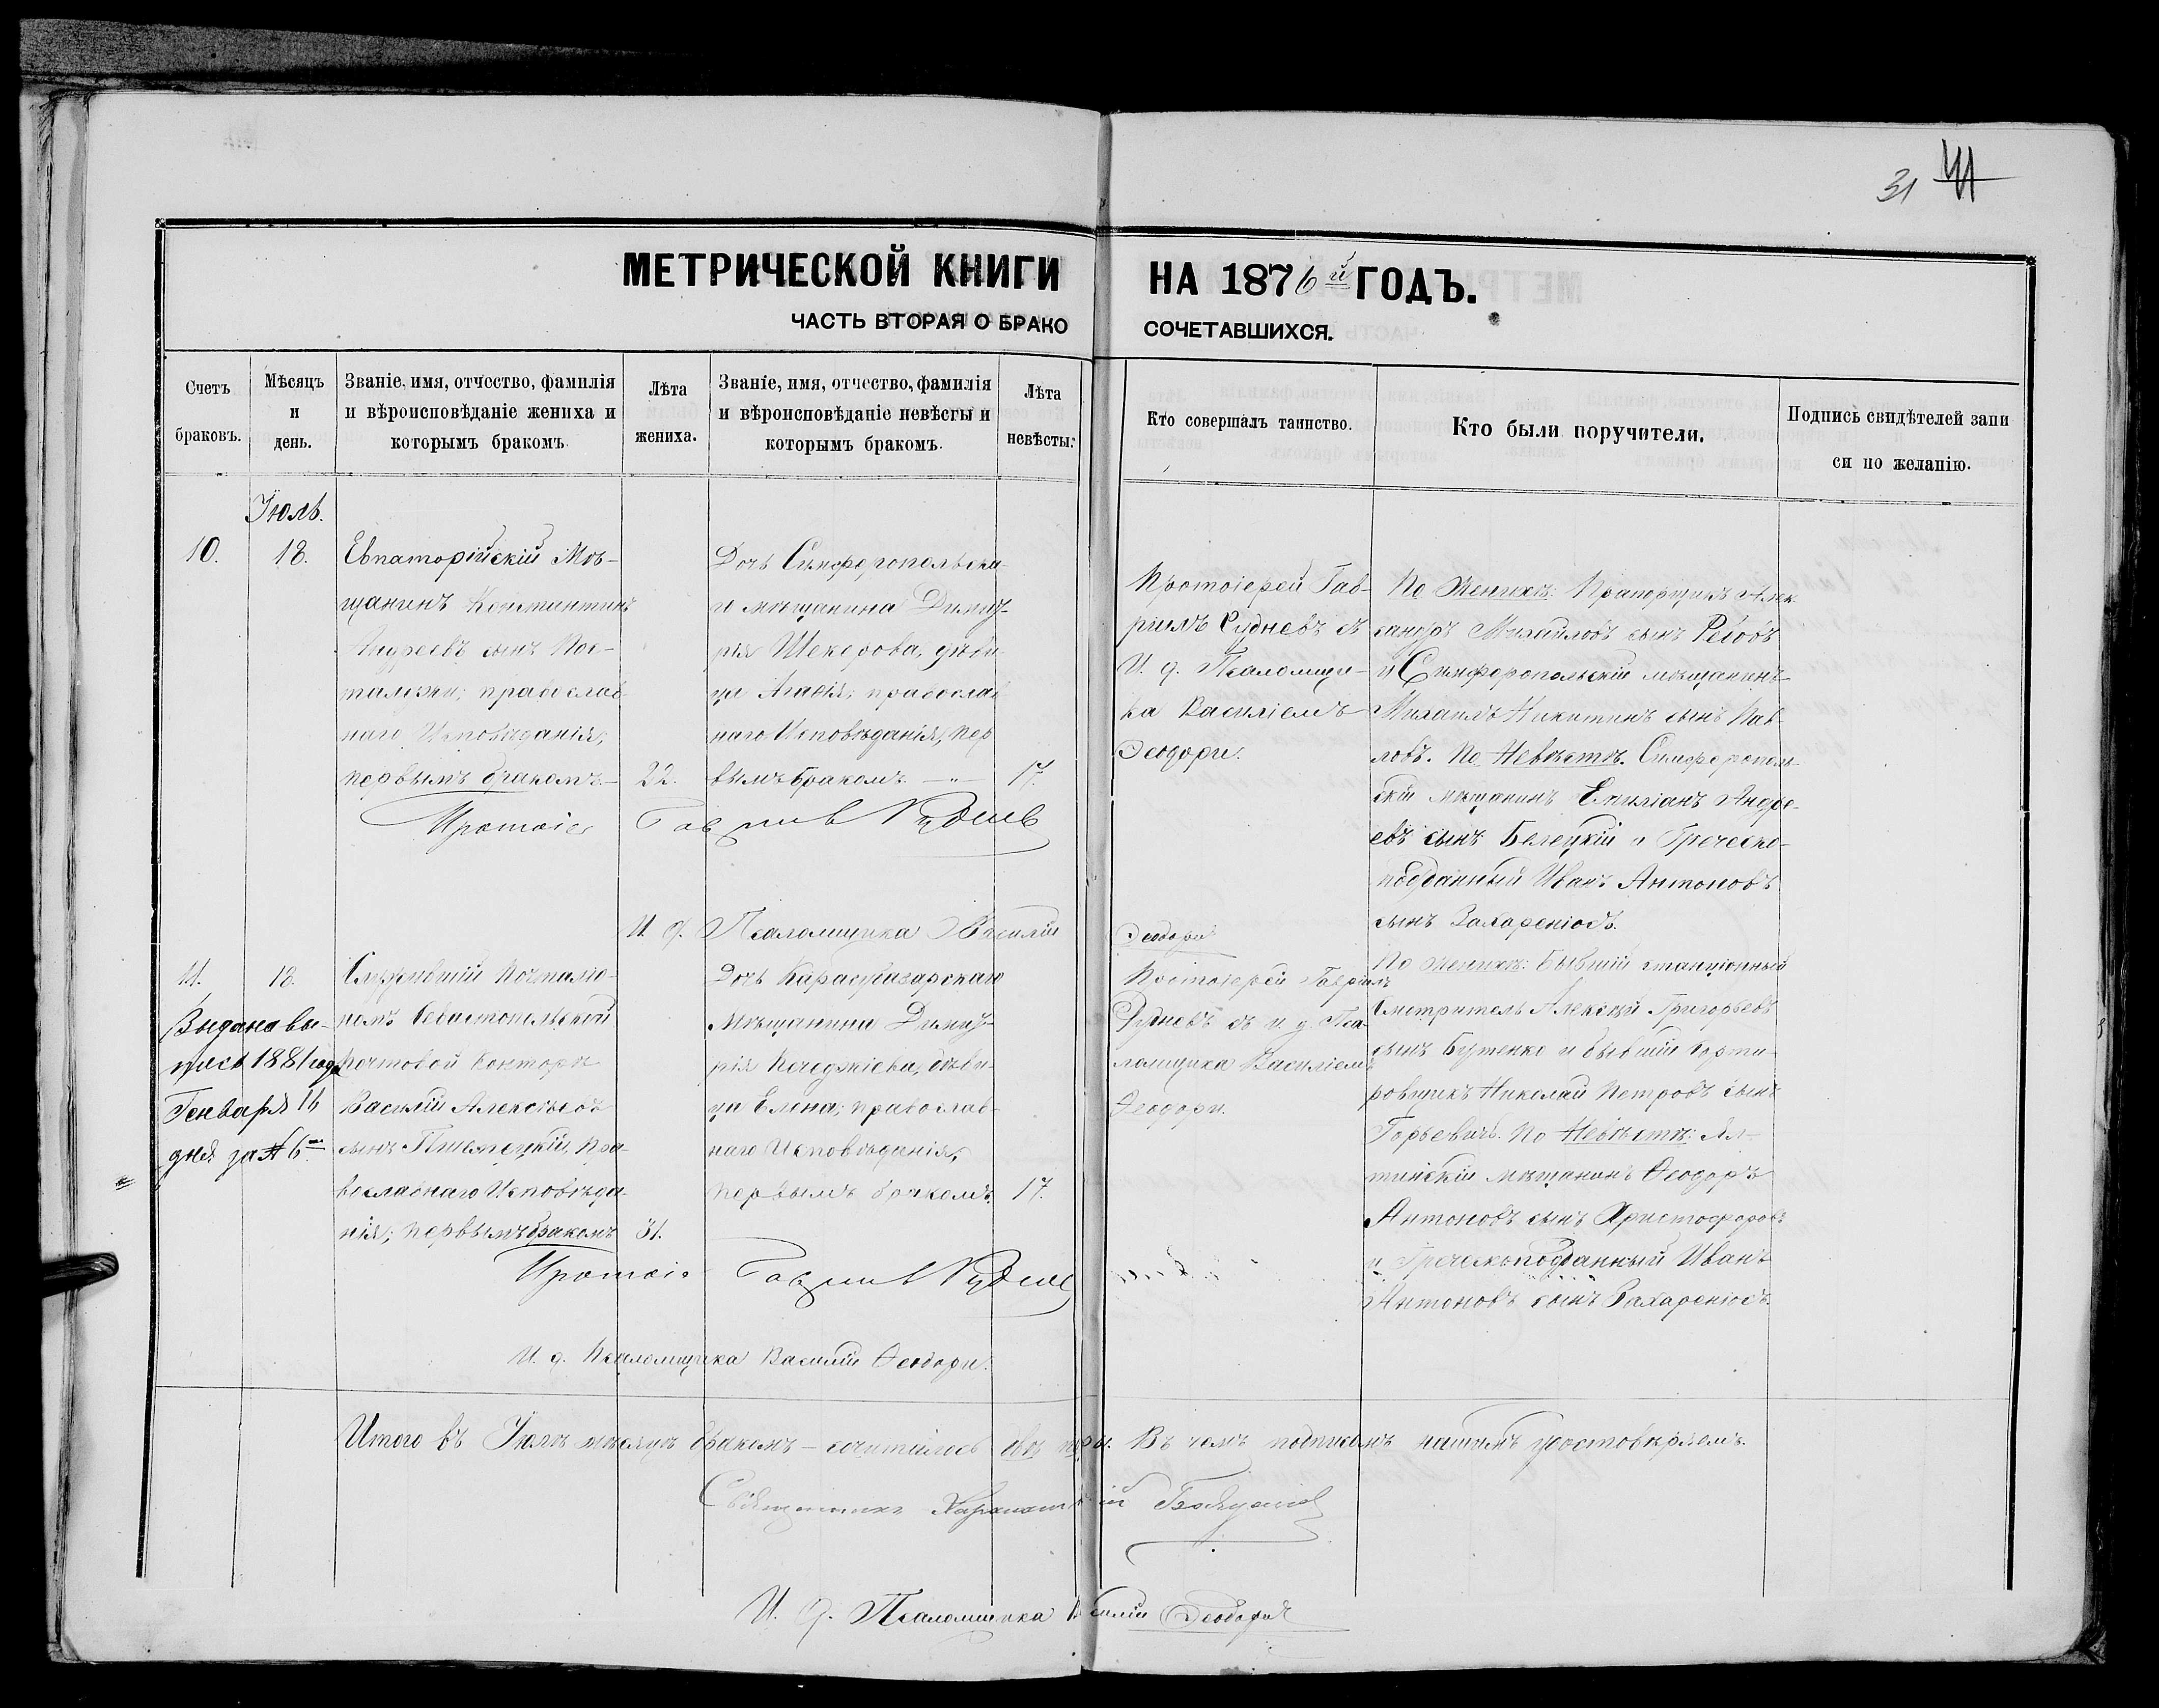 31 41
МЕТРИЧЕСКОЙ КНИГИ НА 1876й ГОДЪ.
ЧАСТЬ ВТОРАЯ О БРАКО СОЧЕТАВШИХСЯ.
Счетъ браковъ.
Мѣсяцъ и день.
Званіе, имя, отчество, фамилія
и вѣроисповѣданіе жениха и
которымъ бракомъ.
Лѣта жениха.
Званіе, имя, отчество, фамилія
и вѣроисповѣданіе невѣсты и
которымъ бракомъ.
Лѣта невѣсты.
Кто совершалъ таинство.
Кто были поручители.
Подпись свидѣтелей запи
си по желанію.
Іюль.
10.
18.
Евпаторійскій Мѣ-
щанинъ Константинъ
Андреевъ сынъ
православ
наго Исповѣданія,
первымъ бракомъ.-
22.
Дочь Симферопольска-
го мѣщанина Димит-
рія Шекерова, дѣви-
ца православ
наго Исповѣданія, пер
вымъ бракомъ —"—
17.
Протоіерей Гав-
ріилъ Рудневъ съ
И. д. Псаломщи-
ка Василіемъ
Ѳеодори.
По Женихѣ: Прапорщикъ Алек-
сандръ Михайловъ сынъ
и Симферопольскій мѣщанинъ
Михаилъ Никитинъ сынъ Пав-
ловъ. По Невѣстѣ. Симферополь-
скій мѣщанинъ Емиліанъ Андре-
евъ сынъ Белецкій и Греческо-
подданный Иванъ Антоновъ
сынъ Захареніосъ.
Протоіер Гавріилъ Рудневъ
И. д. Псаломщика Василій Ѳеодори
11.
18.
Выдана вы-
пись 1881 года
Генваря 16
дня за № 6
Служившій Почталіо-
номъ Севастопольской
почтовой конторы
Василій Алексѣевъ
сынъ пра-
вославнаго Исповѣда-
нія; первымъ бракомъ
31.
Дочь Карасубазарскаго
Мѣщанина Димит-
рія дѣви-
ца Елена; православ-
наго Исповѣданія,
первымъ бракомъ.
17.
Протоіерей Гавріилъ
Рудневъ съ и. д. Пса-
ломщика Василіемъ
Ѳеодори.
По женихѣ: Бывшій станціонный
Смотритель Алексѣй Григорьевъ
сынъ Бутенко и бывшій Сорти-
ровщикъ Николай Петровъ сынъ
По Невѣстѣ: Ял-
тинскій мѣщанинъ Ѳеодоръ
Антоновъ сынъ Христофоровъ
и Греческоподданный Иванъ
Антоновъ сынъ Захареніосъ.
Протоіе Гавріилъ Рудневъ
И. д. Псаломщика Василій Ѳеодори.
Итого въ Іюлѣ мѣсяцѣ бракомъ — сочиталось двѣ пары. Въ чемъ подписомъ нашимъ удостовѣряемъ.
Священникъ
И. д. Псаломщика Василій Ѳеодори